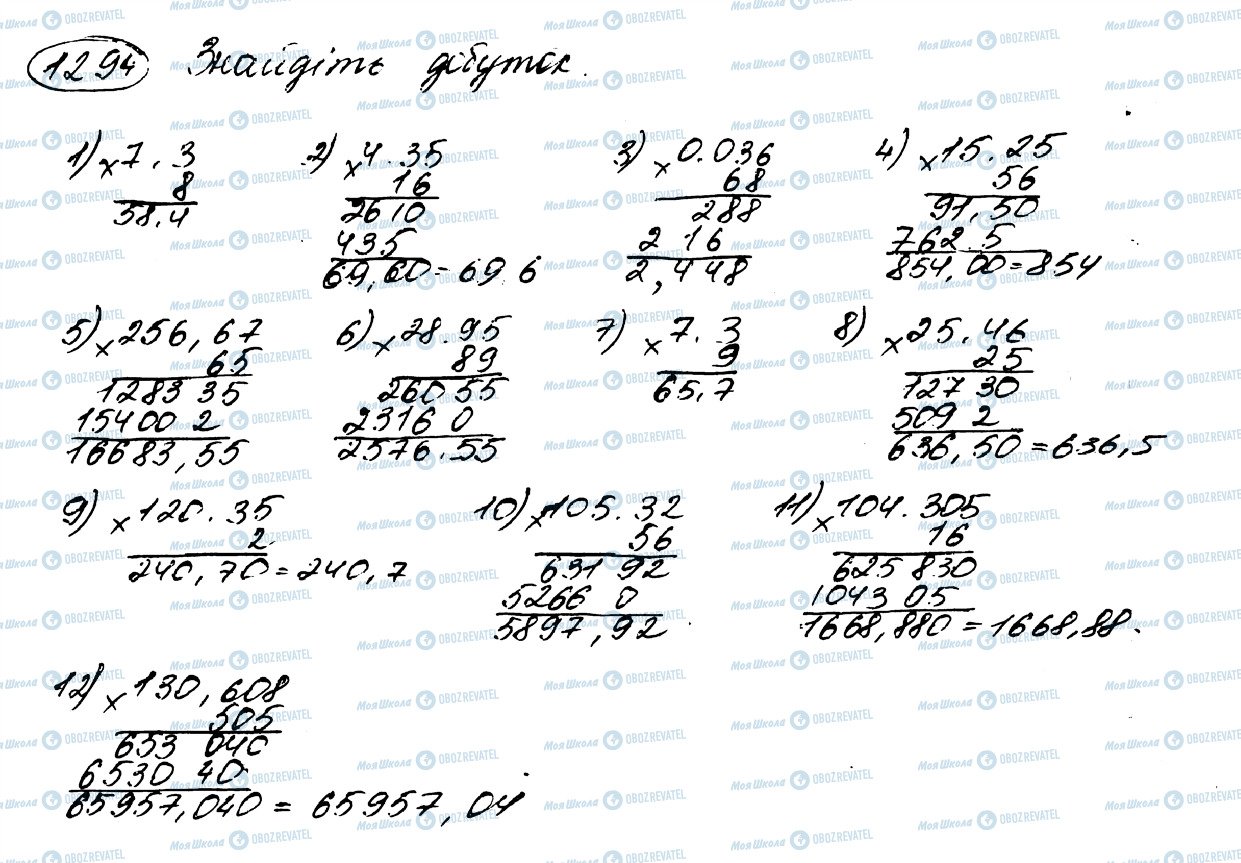 1294 Знайдіть добуток.
1) × 7.3
8
58.4
2) × 4.35
16
2610
435
69,60 = 69.6
3) × 0.036
68
288
2 16
2,448
4) × 15.25
56
91,50
762.5
854,00 = 854
5) × 256,67
65
1283 35
15400 2
16683,55
6) × 28.95
89
260 55
2316 0
2576.55
7) × 7.3
9
65,7
8) × 25.46
25
127 30
509 2
636,50 = 636,5
9) × 120.35
2
240,70 = 240,7
10) × 105.32
56
631 92
5266 0
5897,92
11) × 104.305
16
625 830
1043 05
1668,880 = 1668,88.
12) × 130,608
505
653 040
6530 40
65957,040 = 65957,04